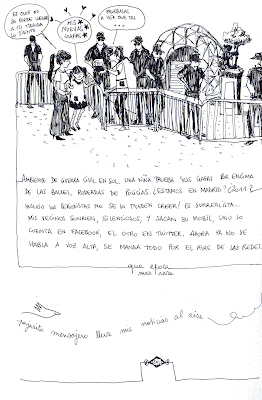 ES QUE NO
SE PUEDE LLEVAR
A TU TIENDA
LO SIENTO
MIS
NUEVAS
GAFAS
PRUEBALAS
A VER QUE TAL...
AMBIENTE DE GUERRA CIVIL EN SOL. UNA NIÑA PRUEBA SUS GAFAS POR ENCIMA
DE LAS BALLAS, RODEADAS DE POLICÍAS. ¿ESTAMOS EN MADRID? ¿2011?
INCLUSO LOS PERIODISTAS NO SE LO PUEDEN CREER! ES SURREALISTA...
MIS VECINOS SONRIEN, SILENCIOSOS, Y SACAN SU MOBIL, UNO LO
CUENTA EN FACEBOOK, EL OTRO EN TWITTER. AHORA YA NO SE
HABLA A VOZ ALTA, SE MANDA TODO POR EL AIRE DE LAS REDES.
que epoca
mas rara
pajarito mensajero lleva mis noticias al aire